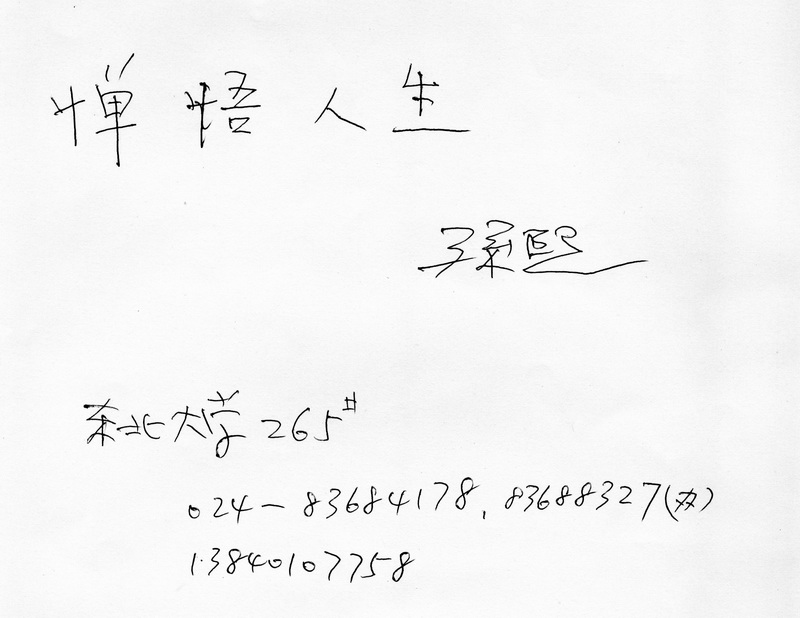 惮悟人生
孙熙
东北大学 265#
024-83684178, 83688327(办)
13840107758